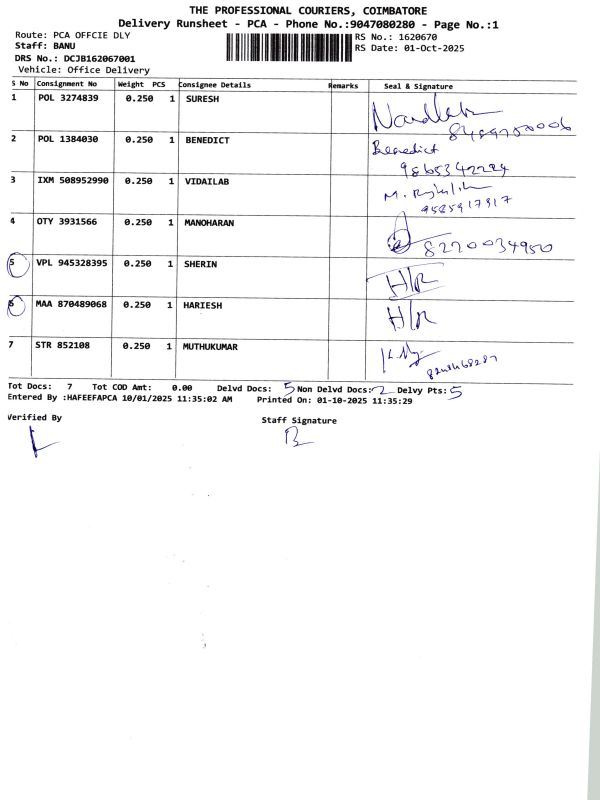 THE PROFESSIONAL COURIERS, COIMBATORE
Delivery Runsheet - PCA - Phone No.:9047080280 - Page No.:1
Route: PCA OFFCIE DLY
RS No.: 1620670
Staff: BANU
RS Date: 01-Oct-2025
DRS No.: DCJB162067001
Vehicle: Office Delivery
S No Consignment No Weight PCS Consignee Details Remarks Seal & Signature
1 POL 3274839 0.250 1 SURESH
2 POL 1384030 0.250 1 BENEDICT Benedict
9865342224
3 IXM 508952990 0.250 1 VIDAILAB
9585917917
4 OTY 3931566 0.250 1 MANOHARAN 8220034950
5 VPL 945328395 0.250 1 SHERIN H/R
6 MAA 870489068 0.250 1 HARIESH H/R
7 STR 852108 0.250 1 MUTHUKUMAR
Tot Docs: 7 Tot COD Amt: 0.00 Delvd Docs: 5 Non Delvd Docs: 2 Delvy Pts: 5
Entered By :HAFEEFAPCA 10/01/2025 11:35:02 AM Printed On: 01-10-2025 11:35:29
Verified By Staff Signature